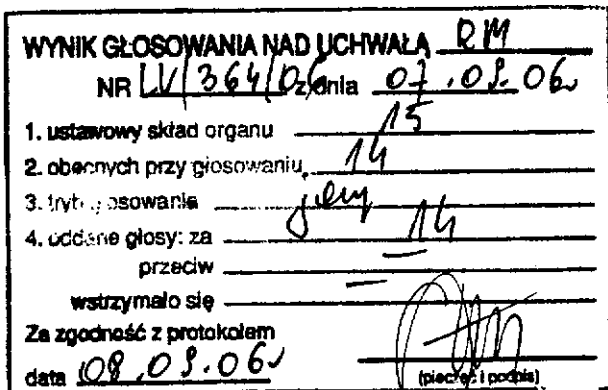 WYNIK GŁOSOWANIA NAD UCHWAŁĄ RM
NR LV/364/06 z dnia 07.09.06
1. ustawowy skład organu 15
2. obecnych przy głosowaniu 14
3. tryb głosowania jawny
4. oddane głosy: za 14
przeciw –
wstrzymało się –
Za zgodność z protokołem
data 08.09.06
(pieczęć i podpis)